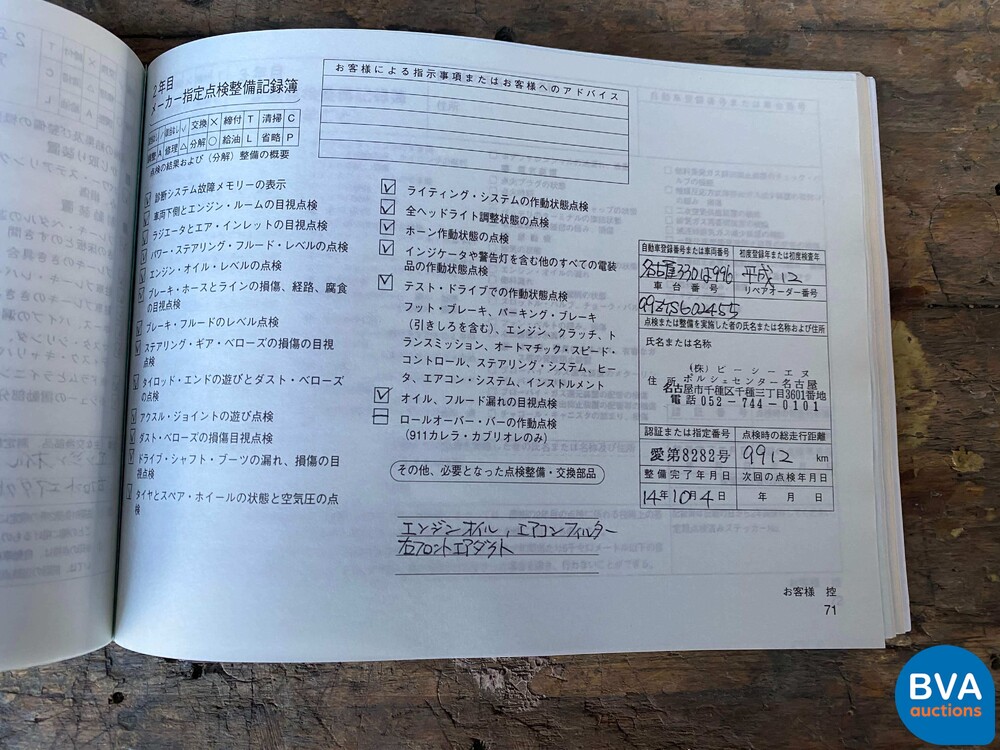 2年目
メーカー指定点検整備記録簿
交換 × 締付 T 清掃 C
A 修理 △ 分解 ○ 給油 L 省略 P
点検の結果および（分解）整備の概要
診断システム故障メモリーの表示
車両下側とエンジン・ルームの目視点検
ラジエータとエア・インレットの目視点検
パワー・ステアリング・フルード・レベルの点検
エンジン・オイル・レベルの点検
ブレーキ・ホースとラインの損傷、経路、腐食
の目視点検
ブレーキ・フルードのレベル点検
ステアリング・ギア・ベローズの損傷の目視
点検
タイロッド・エンドの遊びとダスト・ベローズ
の点検
アクスル・ジョイントの遊び点検
ダスト・ベローズの損傷目視点検
ドライブ・シャフト・ブーツの漏れ、損傷の目
視点検
タイヤとスペア・ホイールの状態と空気圧の点
検
お客様による指示事項またはお客様へのアドバイス
ライティング・システムの作動状態点検
全ヘッドライト調整状態の点検
ホーン作動状態の点検
インジケータや警告灯を含む他のすべての電装
品の作動状態点検
テスト・ドライブでの作動状態点検
フット・ブレーキ、パーキング・ブレーキ
（引きしろを含む）、エンジン、クラッチ、ト
ランスミッション、オートマチック・スピード・
コントロール、ステアリング・システム、ヒー
タ、エアコン・システム、インストルメント
オイル、フルード漏れの目視点検
ロールオーバー・バーの作動点検
（911カレラ・カブリオレのみ）
その他、必要となった点検整備・交換部品
エンジンオイル，エアコンフィルター
右フロントエアダクト
自動車登録番号または車両番号 初度登録年または初度検査年
名古屋330は996 平成 12
車台番号 リペアオーダー番号
99ZYS602455
点検または整備を実施した者の氏名または名称および住所
氏名または名称
（株）ピーシーエヌ
住所 ポルシェセンター名古屋
名古屋市千種区千種三丁目3601番地
電話 052－744－0101
認証または指定番号 点検時の総走行距離
愛第8282号 9912 km
整備完了年月日 次回の点検年月日
14年10月4日 年 月 日
お客様 控
71
BVA
auctions